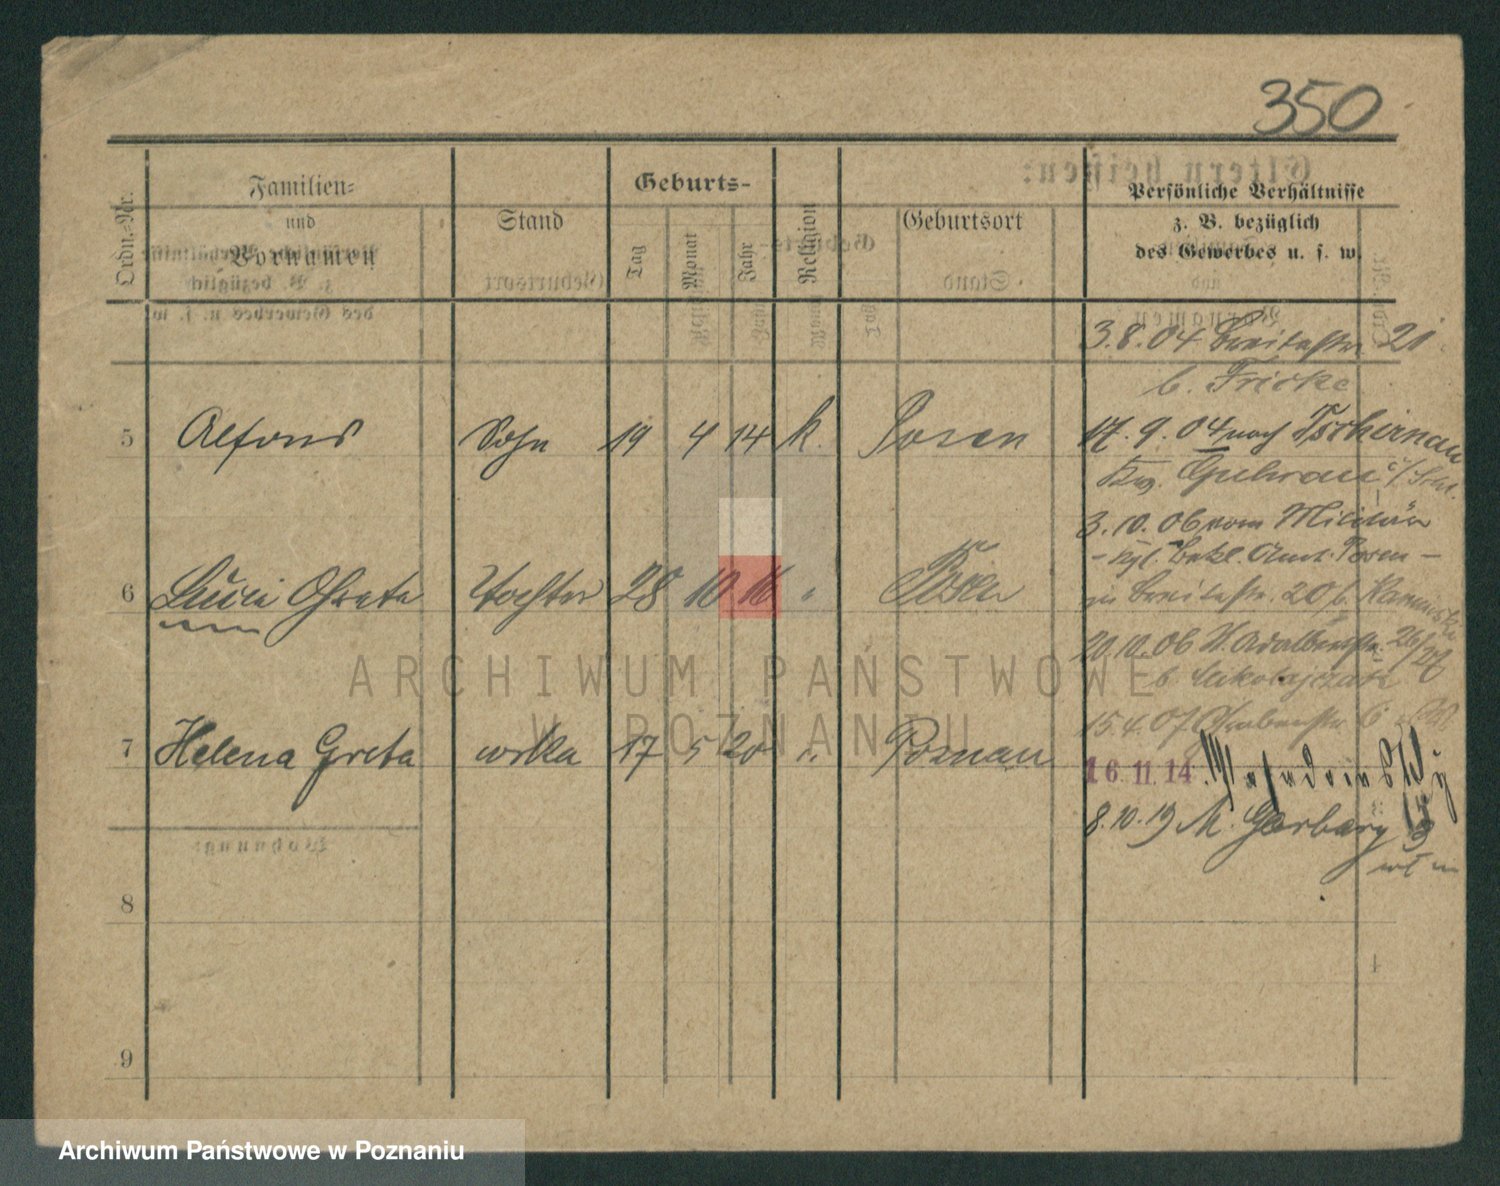 350
Ordn.-Nr.
Familien-
und
Vornamen
Stand
Geburts-
Tag
Monat
Jahr
Religion
Geburtsort
Persönliche Verhältnisse
z. B. bezüglich
des Gewerbes u. s. w.
3.8.04 Breitestr. 21
b. Fricke
5 Alfons Sohn 19 4 14 k. Posen
17.9.04 nach Tschirnau
Guhrau
3.10.06 vom Militär
Posen
zu Breitestr. 20 b. Kaminski
6 Lucie Greta Tochter 28 10 16 " Posen
20.10.06 St. Adalbertstr. 26/27
b.
15.4.07 Grabenstr. 6
7 Helena Greta 17 5 20 " Poznań
16.11.14.
8.10.19 M. Garbary
8
9
ARCHIWUM PAŃSTWOWE
W POZNANIU
Archiwum Państwowe w Poznaniu